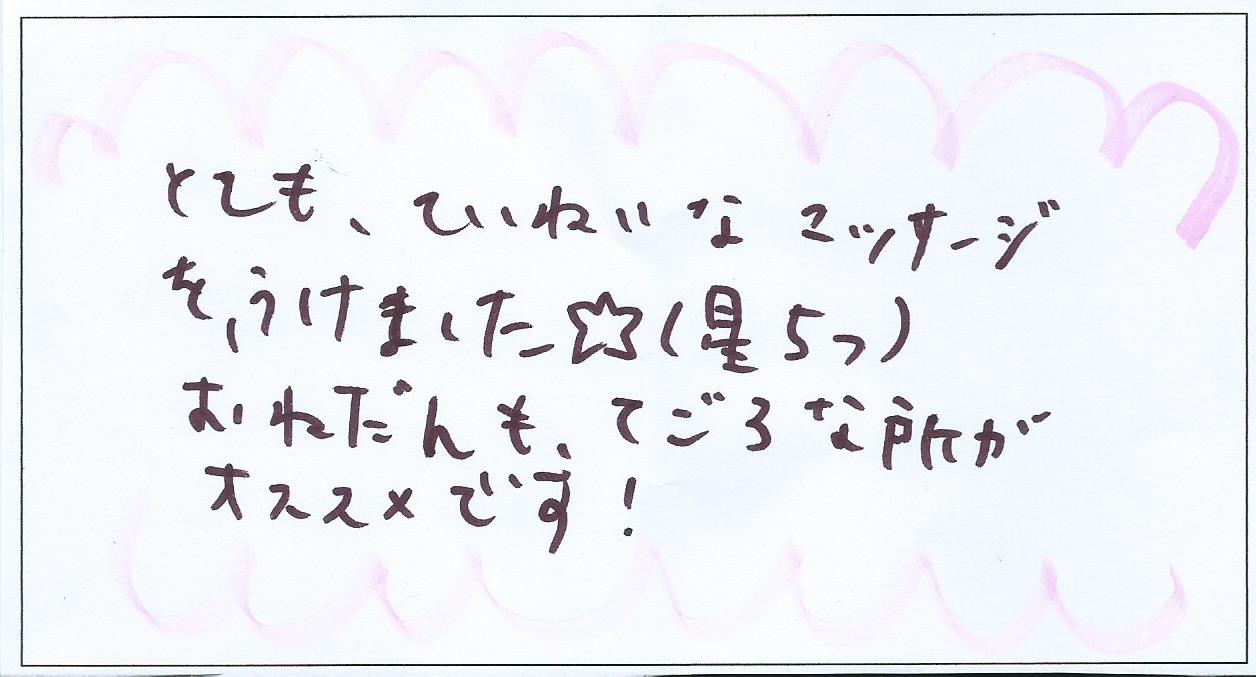 とても、ていねいなマッサージ
を、うけました☆(星5つ)
おねだんも、てごろな所が
オススメです!